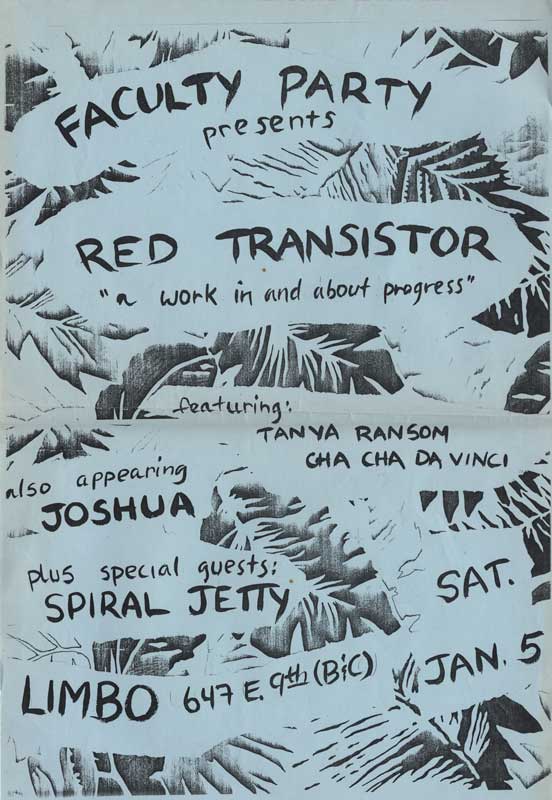 FACULTY PARTY
presents
RED TRANSISTOR
"a work in and about progress"
featuring:
TANYA RANSOM
CHA CHA DA VINCI
also appearing
JOSHUA
plus special guests:
SPIRAL JETTY
SAT.
JAN. 5
LIMBO 647 E. 9th (B&C)